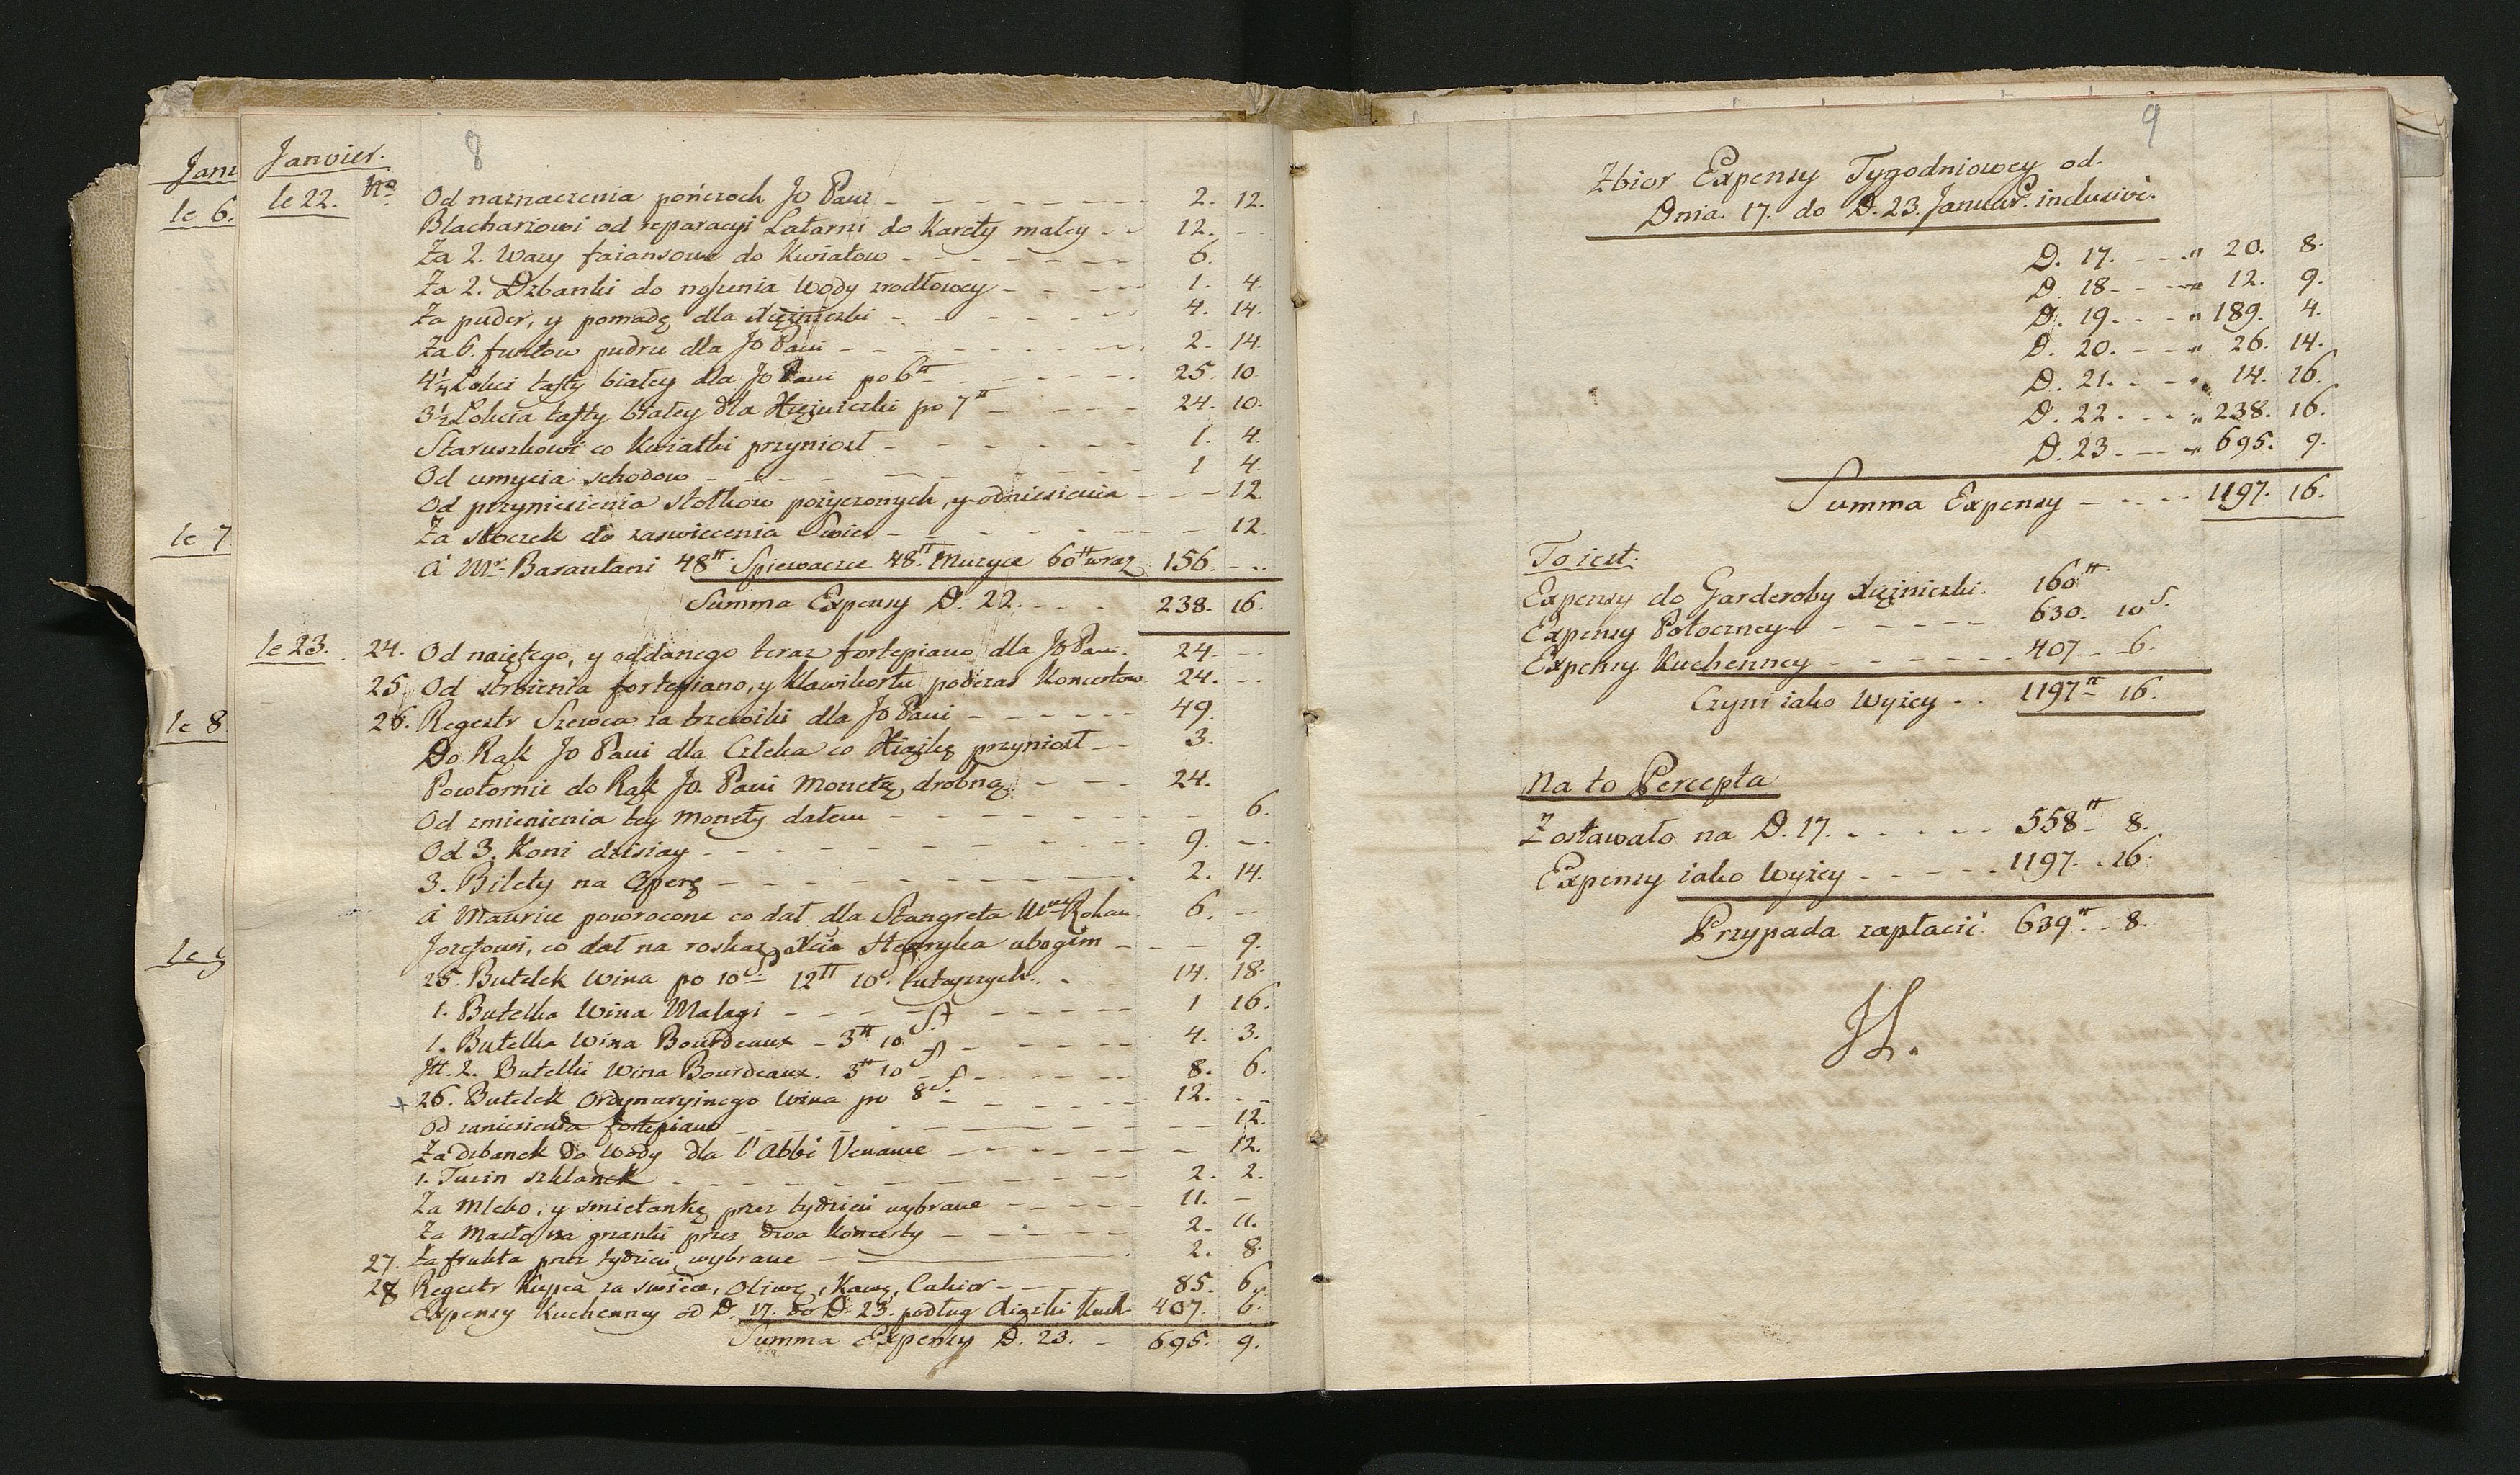 Jan
le 6.
le 7
le 8
le 9
8
Janvier.
le 22. No Od naznaczenia pończoch Jo Pani - - - 2. 12.
Blacharzowi od reparacyi Latarni do Karety małey - - 12. - -
Za 2. Wazy faiansowe do Kwiatow - - - 6.
Za 2. Dzbanki do noszenia Wody zrodłowey - - - 1. 4.
Za puder, y pomadę dla Xiężniczki - - - 4. 14.
Za 6. funtow pudru dla Jo Pani - - - 2. 14.
4¼ Lokci tafty białey dla Jo Pani po 6tt - - - 25. 10.
3½ Lokcia tafty białey dla Xiężniczki po 7tt - - - 24. 10.
Staruszkowi co Kwiatki przyniosł - - - 1. 4.
Od umycia schodow - - - 1 4.
Od przyniesienia stołkow pożyczonych, y odniesienia - - - 12.
Za stoczek do zaswiecenia Swiec - - - 12.
à Mr Barantani 48tt Spiewaczce 48tt Muzyce 60tt wraz 156. - -
Summa Expensy D. 22. - - - 238. 16.
le 23. 24. Od naiętego, y oddanego teraz fortepiano dla Jo Pani. 24. - -
25. Od stroienia fortepiano, y Klawikortu podczas Koncertow 24. - -
26. Regestr Szewca za trzewiki dla Jo Pani - - - 49.
Do Rąk Jo Pani dla Człeka co Xiążkę przyniosł - - 3.
Powtornie do Rąk Jo. Pani Monetą drobną - - - 24.
Od zmienienia tey Monety dałem - - - 6.
Od 3. Koni dzisiay - - - 9. - -
3. Bilety na Operę - - - 2. 14.
à Maurice powrocone co dał dla Stangreta Rohan. 6. - -
Jozefowi, co dał na roskaz Xcia Henryka ubogim - - - 9.
25. Butelek Wina po 10s 12tt 10s. tutayszych - 14. 18.
1. Butelka Wina Malagi - - - 1 16.
1. Butelka Wina Bourdeaux - 3tt 10s - - - 4. 3.
Itt. 2. Butelki Wina Bourdeaux. 3tt 10s - - - 8. 6.
+ 26. Butelek Ordynaryinego Wina po 8s. - - - 12. - -
Od zaniesienia fortepiano - - - 12.
Za dzbanek do Wody dla l'Abbé - - - 12.
1. Tuzin szklanek - - - 2. 2.
Za Mleko, y smietankę przez tydzień wybrane - - - 11. -
Za Masło na grzanki przez dwa Koncerty - - - 2. 11.
27. Za frukta przez tydzień wybrane - - - 2. 8.
28 Regestr Kupca za swiece, Oliwę, Kawę, Cukier - - - 85. 6.
Expensy Kuchenney od D. 17. do D. 23. podług Xiążki Kuch 407. 6.
Summa Expensy D. 23. - 695. 9.
9
Zbior Expensy Tygodniowey od
Dnia. 17. do D. 23. Januar. inclusivè.
D. 17. - - - " 20. 8.
D. 18 - - - " 12. 9.
D. 19. - - - " 189. 4.
D. 20. - - - " 26. 14.
D. 21. - - - " 14. 16.
D. 22 - - - " 238. 16.
D. 23 - - - " 695. 9.
Summa Expensy - - - 1197. 16.
To iest.
Expensy do Garderoby Xiężniczki. 160tt.
Expensy Potoczney - - - 630. 10s.
Expensy Kuchenney - - - 407 - - 6.
Czyni iako Wyżey - - 1197tt 16.
Na to Percepta
Zostawało na D. 17. - - - 558tt 8.
Expensy iako Wyżey - - - 1197. - 16.
Przypada zapłacić 639tt - 8.